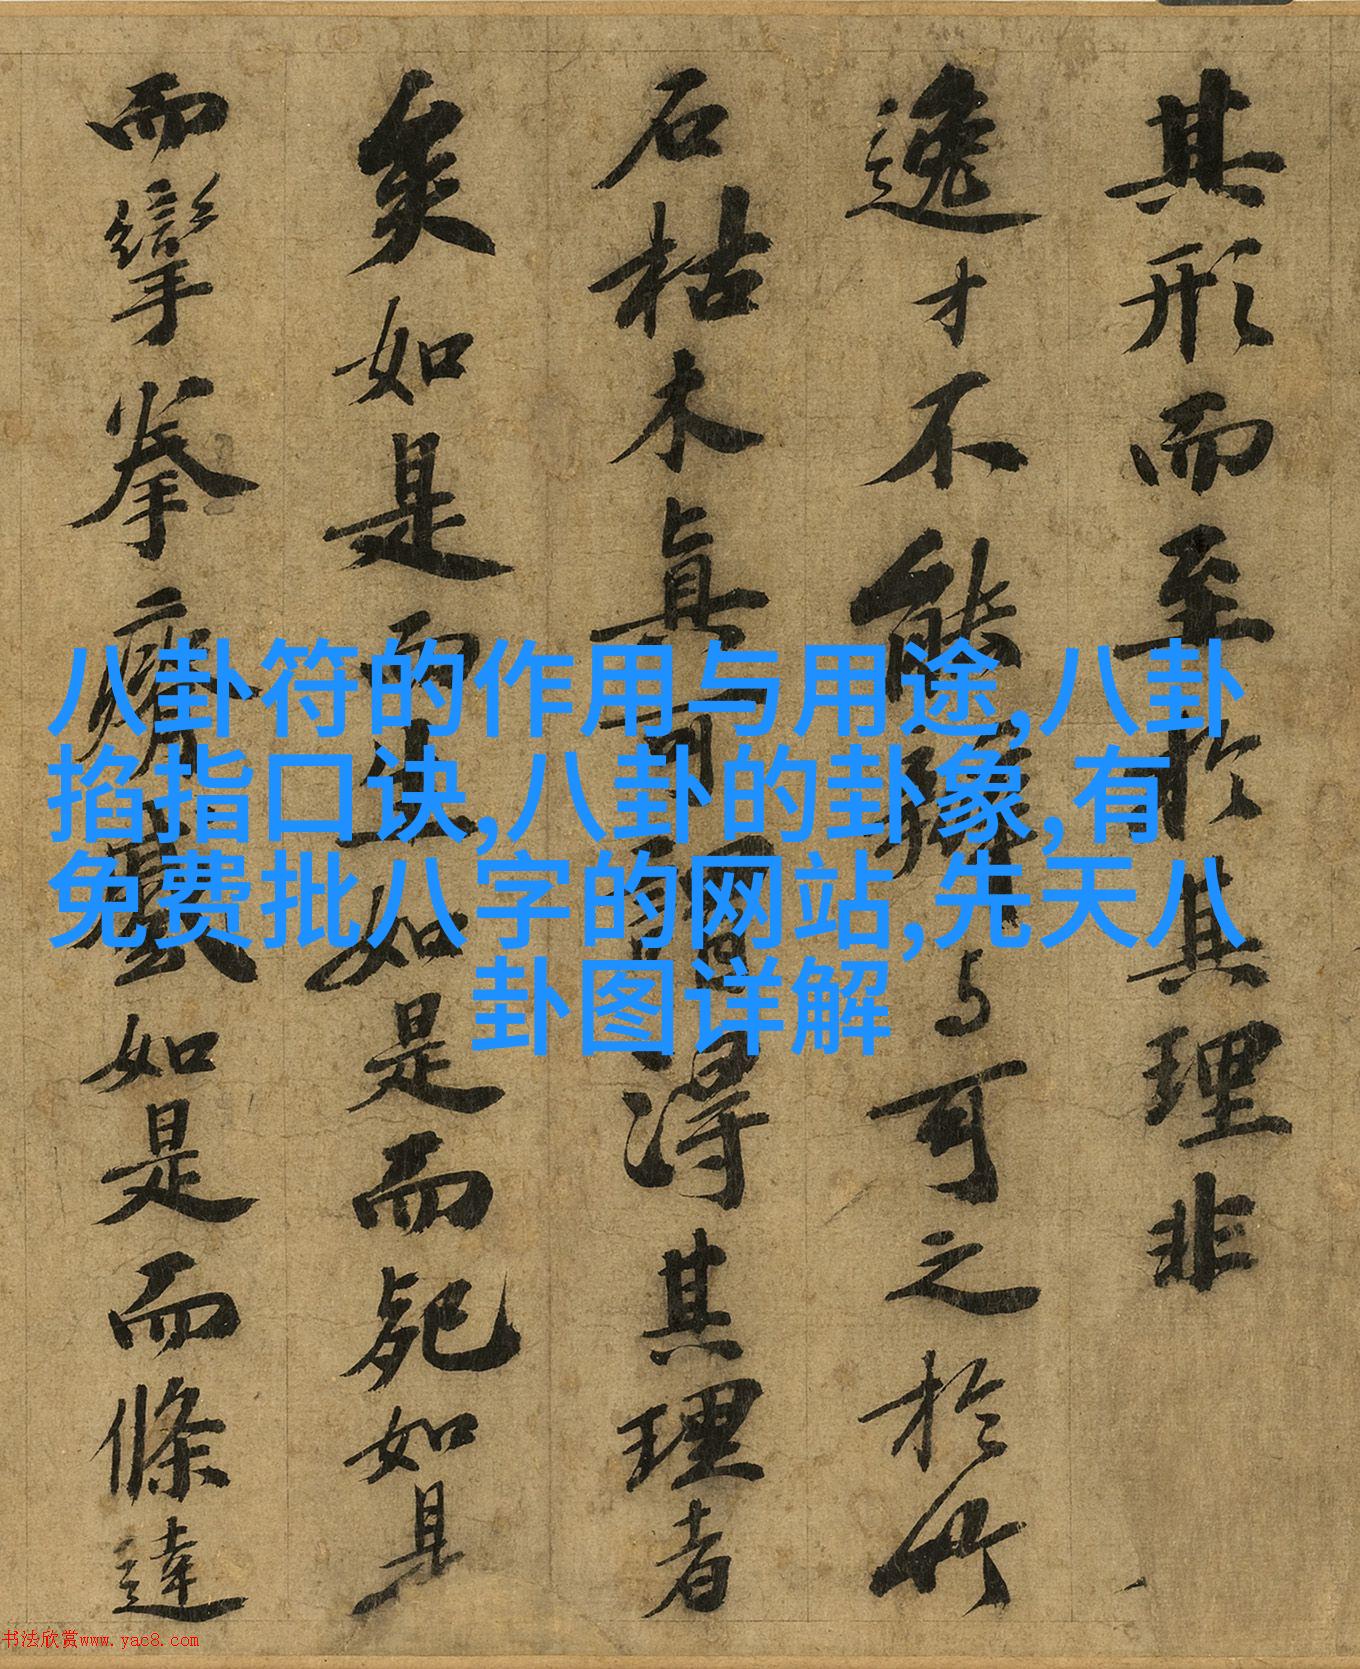 其形而至於其理非
逸才不能辨与可之於竹
石枯木真可謂得其理者
矣如是而生如是而死如是
而攣拳瘠蹙如是而條達
八卦符的作用与用途,八卦
掐指口诀,八卦的卦象,有
免费批八字的网站,先天八
卦图详解
书法欣赏www.yac8.com